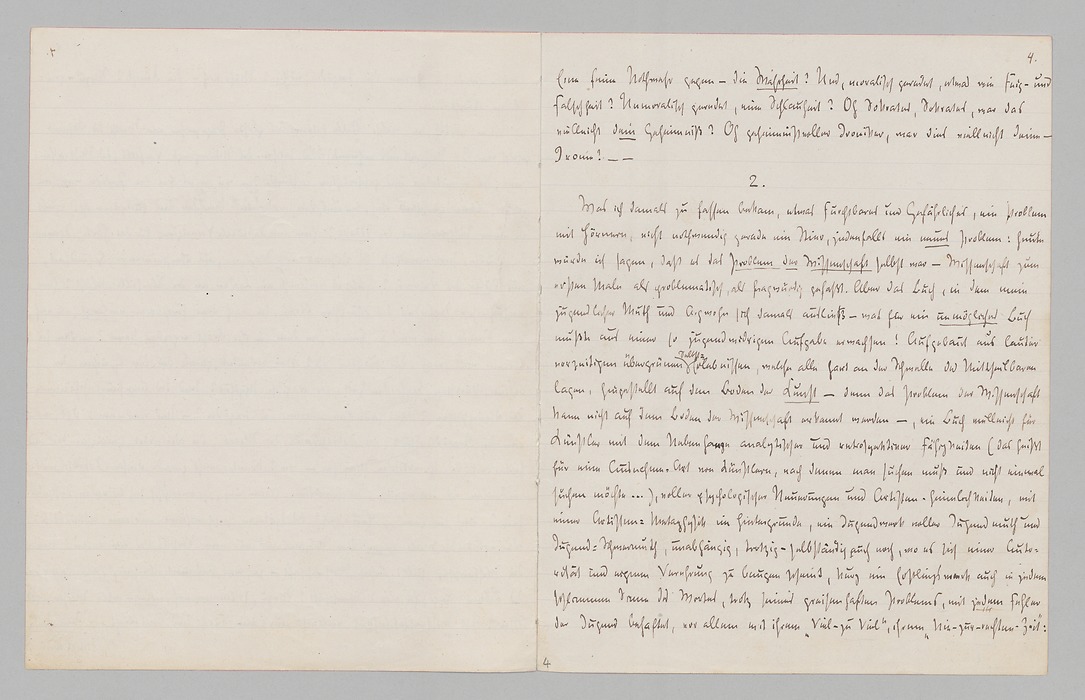 4.
Eine feine Nothwehr gegen — die Wahrheit? Und, moralisch geredet, etwas wie Feig- und
Falschheit? Unmoralisch geredet, eine Schlauheit? Oh Sokrates, Sokrates, war das
vielleicht dein Geheimniß? Oh geheimnißvoller Ironiker, war dies vielleicht deine —
Ironie? — —
2.
Was ich damals zu fassen bekam, etwas Furchtbares und Gefährliches, ein Problem
mit Hörnern, nicht nothwendig gerade ein Stier, jedenfalls ein neues Problem: heute
würde ich sagen, daß es das Problem der Wissenschaft selbst war — Wissenschaft zum
ersten Male als problematisch, als fragwürdig gefaßt. Aber das Buch, in dem mein
jugendlicher Muth und Argwohn sich damals ausließ — was für ein unmögliches Buch
mußte aus einer so jugendwidrigen Aufgabe erwachsen! Aufgebaut aus lauter
vorzeitigen übergrünen Selbsterlebnissen, welche alle hart an der Schwelle des Mittheilbaren
lagen, hingestellt auf den Boden der Kunst — denn das Problem der Wissenschaft
kann nicht auf dem Boden der Wissenschaft erkannt werden —, ein Buch vielleicht für
Künstler mit dem Nebenhange analytischer und retrospektiver Fähigkeiten (das heißt
für eine Ausnahme-Art von Künstlern, nach denen man suchen muß und nicht einmal
suchen möchte ...), voller psychologischer Neuerungen und Artisten-Heimlichkeiten, mit
einer Artisten-Metaphysik im Hintergrunde, ein Jugendwerk voller Jugendmuth und
Jugend-Schwermuth, unabhängig, trotzig-selbständig auch noch, wo es sich einer Auto-
rität und eignen Verehrung zu beugen scheint, kurz ein Erstlingswerk auch in jedem
schlimmen Sinne des Wortes, trotz seines greisenhaften Problems, mit jedem Fehler
der Jugend behaftet, vor allem mit ihrem „Viel-zu Viel“, ihrem „Nie-zur-rechten-Zeit“:
4